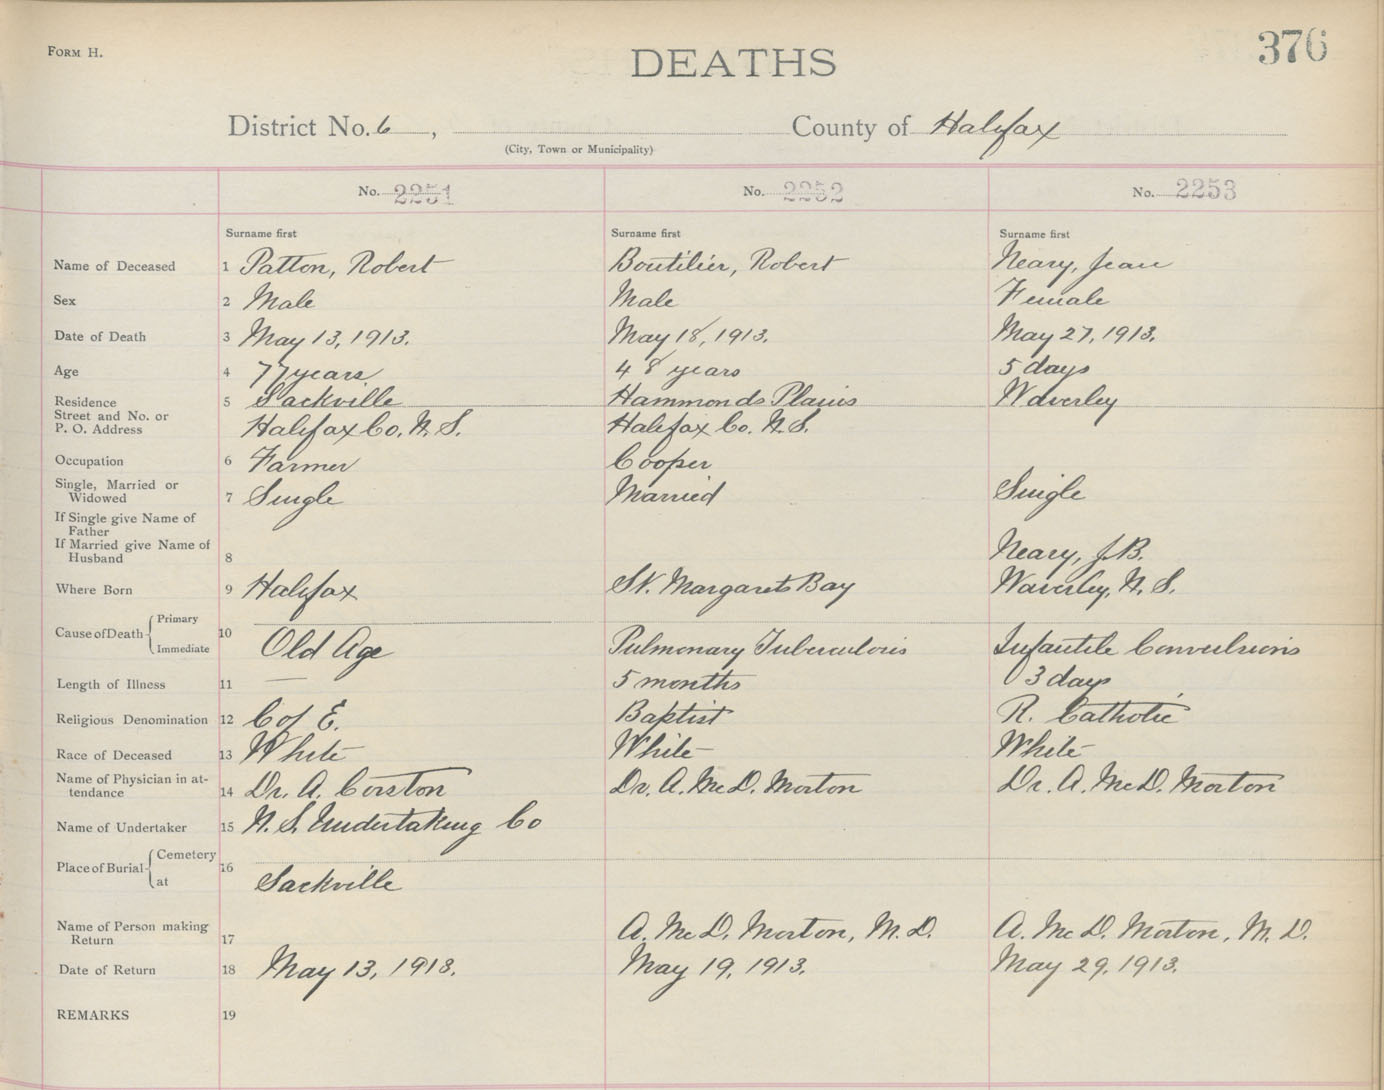 FORM H.
DEATHS
376
District No. 6, County of Halifax
(City, Town or Municipality)
No. 2251 No. 2252 No. 2253
Surname first Surname first Surname first
Name of Deceased 1 Patton, Robert Boutilier, Robert Neary, Jean
Sex 2 Male Male Female
Date of Death 3 May 13, 1913. May 18, 1913. May 27, 1913.
Age 4 77 years 48 years 5 days
Residence 5 Sackville Hammonds Plains Waverley
Street and No. or
P. O. Address Halifax Co. N. S. Halifax Co. N. S.
Occupation 6 Farmer Cooper
Single, Married or
Widowed 7 Single Married Single
If Single give Name of
Father
If Married give Name of
Husband 8 Neary, J. B.
Where Born 9 Halifax St. Margarets Bay Waverley, N. S.
Cause of Death Primary
Immediate 10 Old Age Pulmonary Tuberculosis Infantile Convulsions
Length of Illness 11 — 5 months 3 days
Religious Denomination 12 C of E. Baptist R. Catholic
Race of Deceased 13 White White White
Name of Physician in at-
tendance 14 Dr. A. Corston Dr. A. McD. Morton Dr. A. McD. Morton
Name of Undertaker 15 N. S. Undertaking Co
Place of Burial Cemetery
at 16 Sackville
Name of Person making
Return 17 A. McD. Morton, M. D. A. McD. Morton, M. D.
Date of Return 18 May 13, 1913. May 19, 1913. May 29, 1913.
REMARKS 19